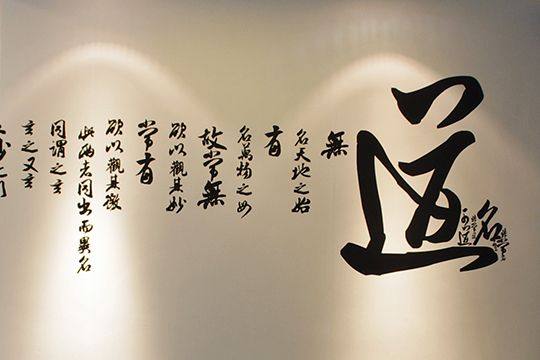 道
名
無
名天地之始
有
名萬物之母
故常無
欲以觀其妙
常有
欲以觀其徼
此兩者同出而異名
同謂之玄
玄之又玄